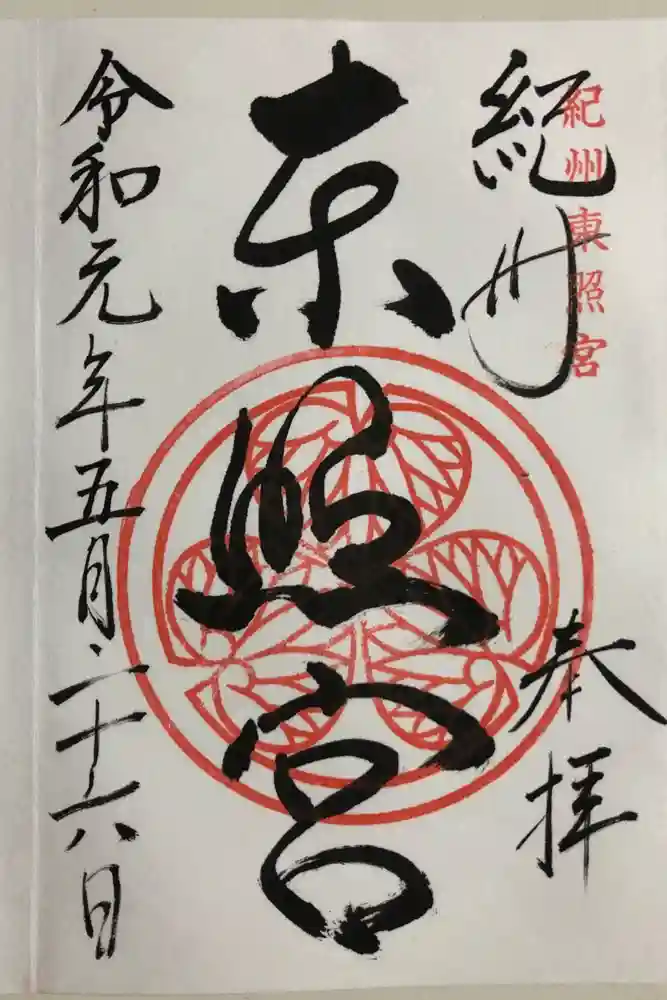 紀州
紀州東照宮
奉拝
東照宮
令和元年五月二十六日